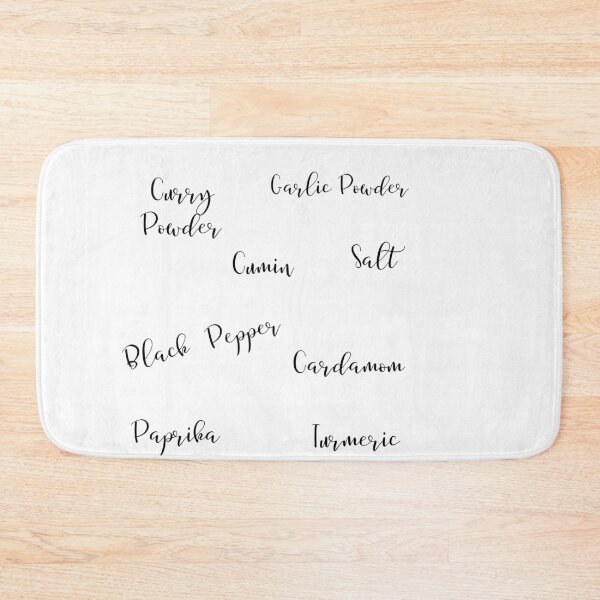 Curry
Powder
Garlic Powder
Cumin
Salt
Black Pepper
Cardamom
Paprika
Turmeric